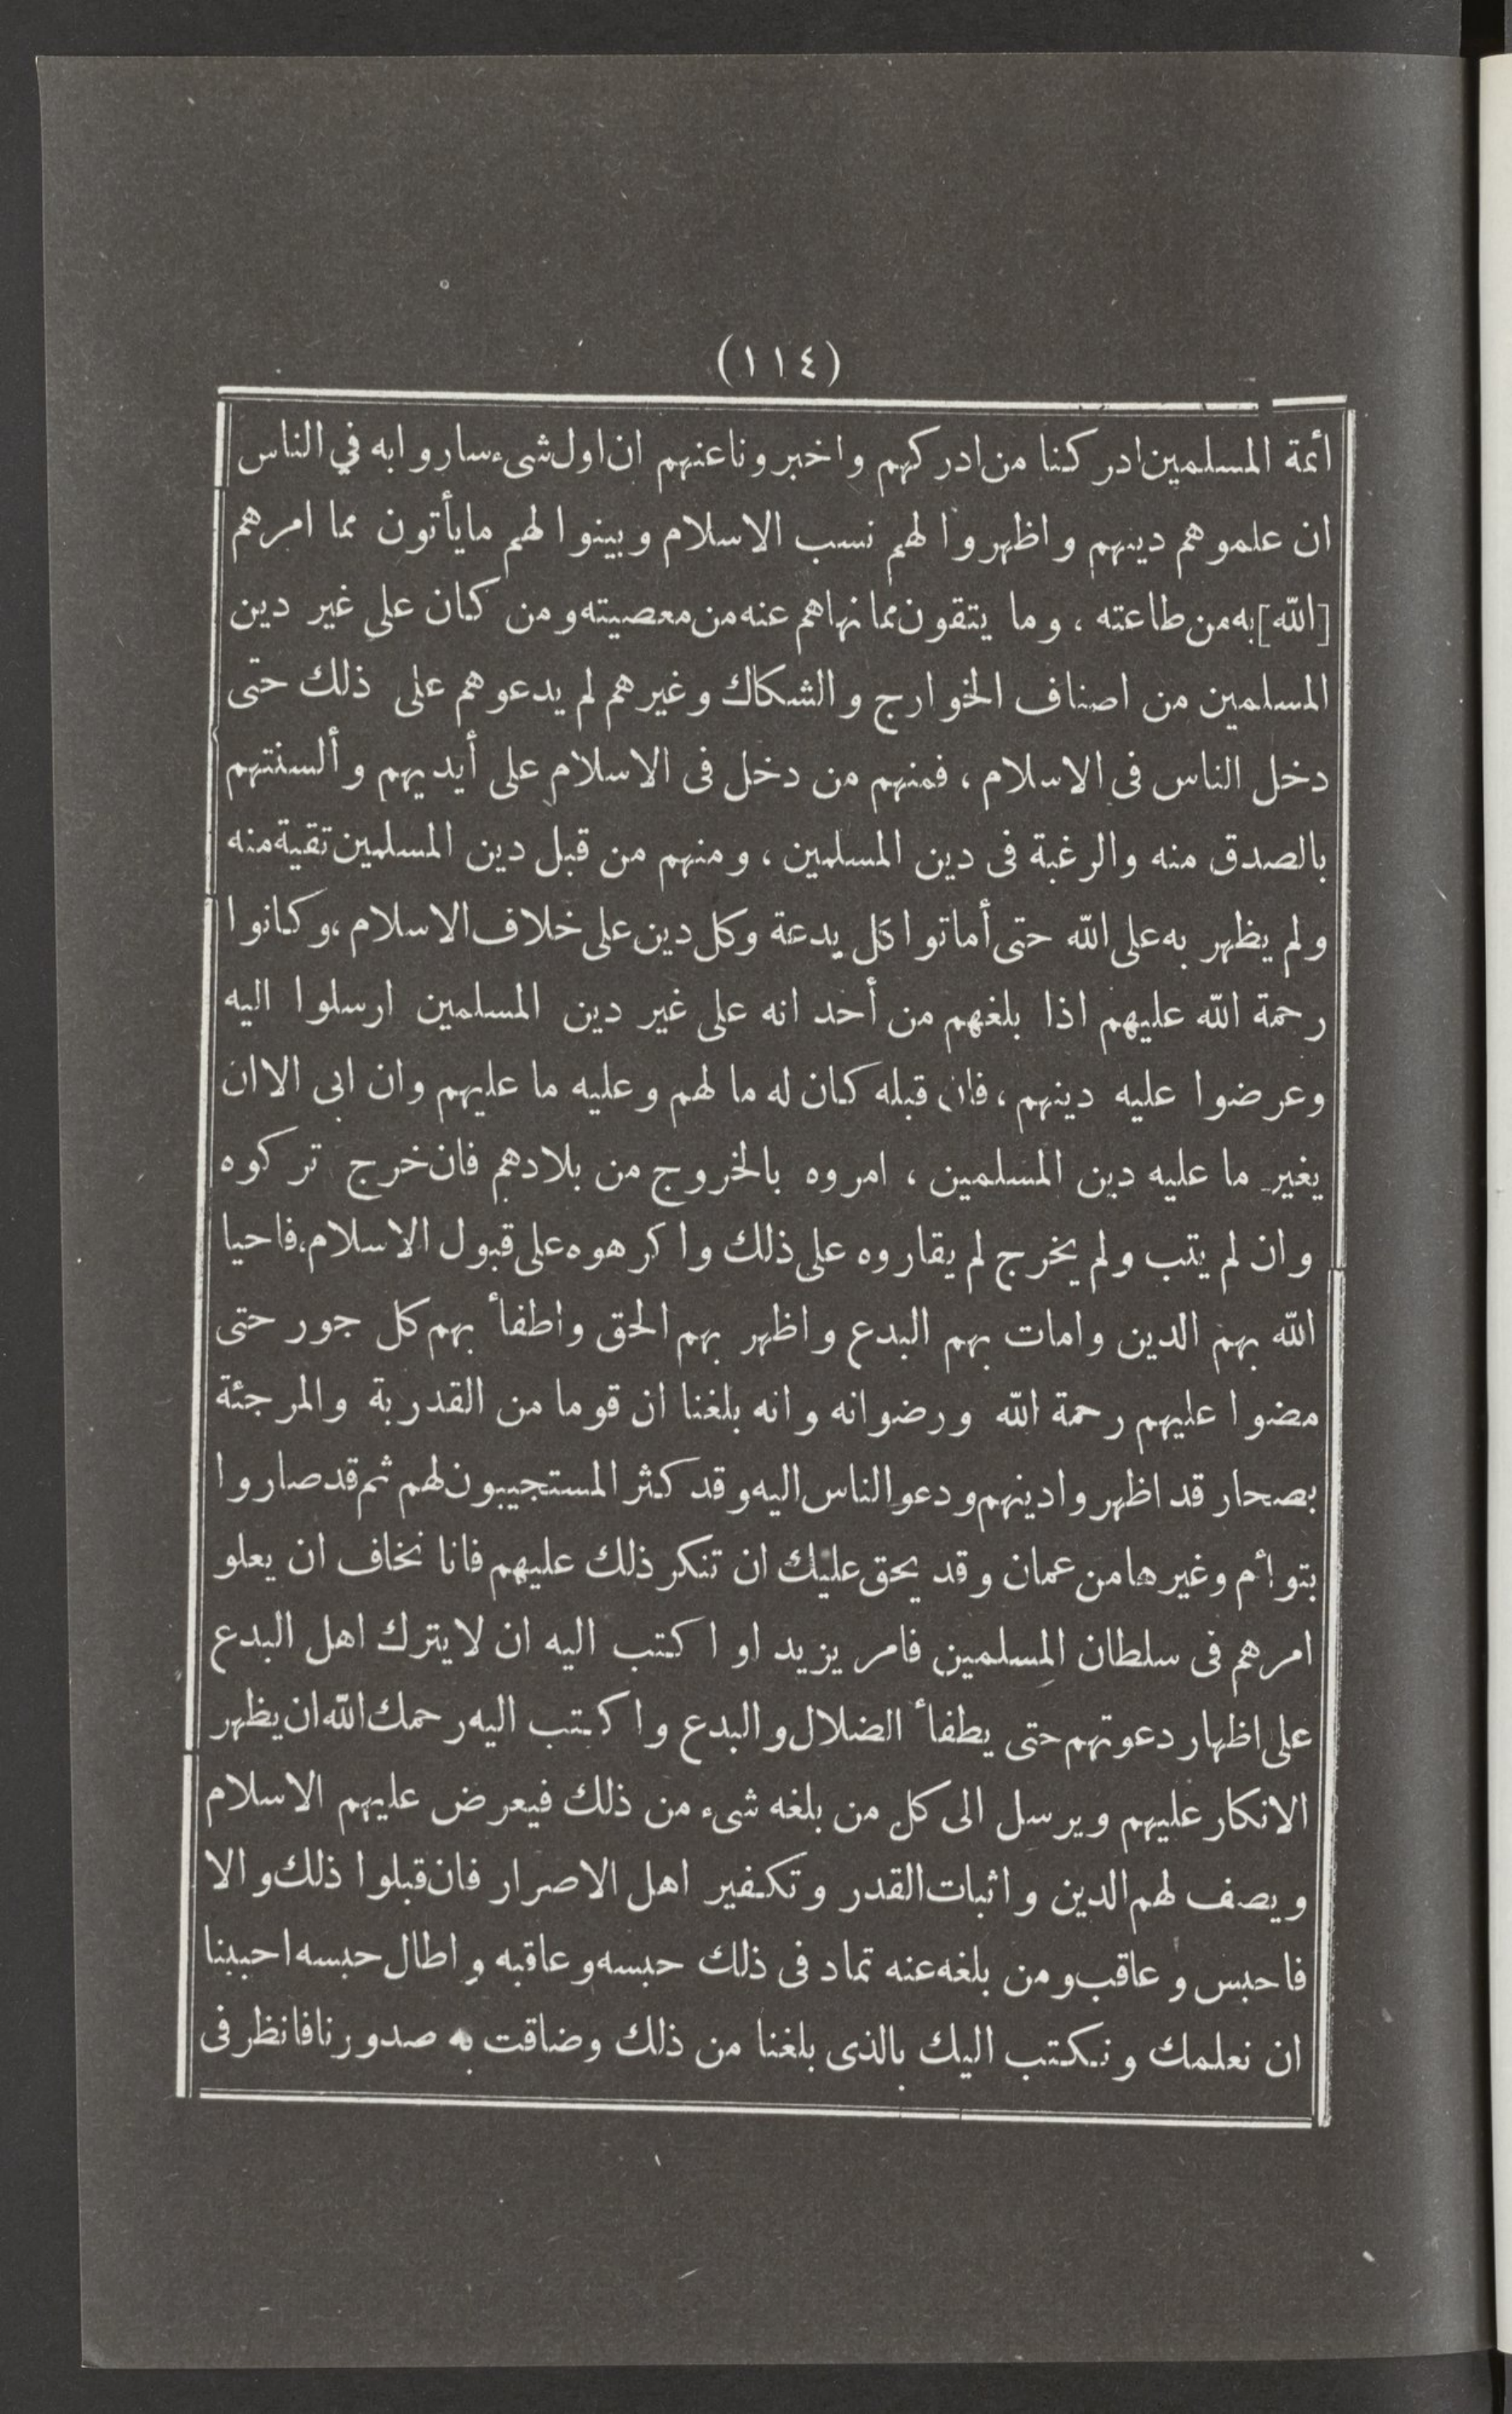 (١١٤)
ائمة المسلمين ادركنا من ادركهم واخبرونا عنهم ان اول شىء ساروا به في الناس
ان علموهم دينهم واظهروا لهم نسب الاسلام وبينوا لهم مايأتون مما امرهم
[الله] به من طاعته ، وما يتقون مما نهاهم عنه من معصيته ومن كان على غير دين
المسلمين من اصناف الخوارج والشكاك وغيرهم لم يدعوهم على ذلك حتى
دخل الناس فى الاسلام ، فمنهم من دخل فى الاسلام على أيديهم وألسنتهم
بالصدق منه والرغبة فى دين المسلمين ، ومنهم من قبل دين المسلمين تقية منه
ولم يظهر به على الله حتى أماتوا كل بدعة وكل دين على خلاف الاسلام ، وكانوا
رحمة الله عليهم اذا بلغهم من أحد انه على غير دين المسلمين ارسلوا اليه
وعرضوا عليه دينهم ، فان قبله كان له ما لهم وعليه ما عليهم وان ابى الا ان
يغير ما عليه دين المسلمين ، امروه بالخروج من بلادهم فان خرج تركوه
وان لم يتب ولم يخرج لم يقاروه على ذلك واكرهوه على قبول الاسلام ، فاحيا
الله بهم الدين وامات بهم البدع واظهر بهم الحق واطفأ بهم كل جور حتى
مضوا عليهم رحمة الله ورضوانه وانه بلغنا ان قوما من القدرية والمرجئة
بصحار قد اظهروا دينهم ودعو الناس اليه وقد كثر المستجيبون لهم ثم قد صاروا
بتوأم وغيرها من عمان وقد يحق عليك ان تنكر ذلك عليهم فانا نخاف ان يعلو
امرهم فى سلطان المسلمين فامر يزيد او اكتب اليه ان لا يترك اهل البدع
على اظهار دعوتهم حتى يطفأ الضلال والبدع واكتب اليه رحمك الله ان يظهر
الانكار عليهم ويرسل الى كل من بلغه شىء من ذلك فيعرض عليهم الاسلام
ويصف لهم الدين واثبات القدر وتكفير اهل الاصرار فان قبلوا ذلك والا
فاحبس وعاقب ومن بلغه عنه تماد فى ذلك حبسه وعاقبه واطال حبسه احببنا
ان نعلمك ونكتب اليك بالذى بلغنا من ذلك وضاقت به صدورنا فانظر فى